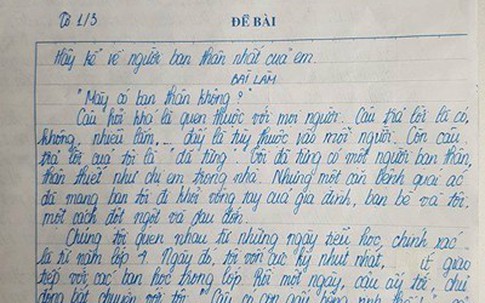 Tờ 1/3
ĐỀ BÀI
Hãy kể về người bạn thân nhất của em.
BÀI LÀM
"Mày có bạn thân không?"
Câu hỏi khá là quen thuộc với mọi người. Câu trả lời là có,
không, nhiều lắm,... đấy là tùy thuộc vào mỗi người. Còn câu
trả lời của tôi là "đã từng". Tôi đã từng có một người bạn thân,
thân thiết như chị em trong nhà. Nhưng một căn bệnh quái ác
đã mang bạn tôi đi khỏi vòng tay của gia đình, bạn bè và tôi
một cách đột ngột và đau đớn.
Chúng tôi quen nhau từ những ngày tiểu học, chính xác
là từ năm lớp 4. Ngày đó, tôi vốn cực kỳ nhút nhát, ít giao
tiếp với các bạn học trong lớp. Rồi một ngày, cậu ấy tới, chủ
động bắt chuyện với tôi: "Cậu có con gấu bông xinh thế!